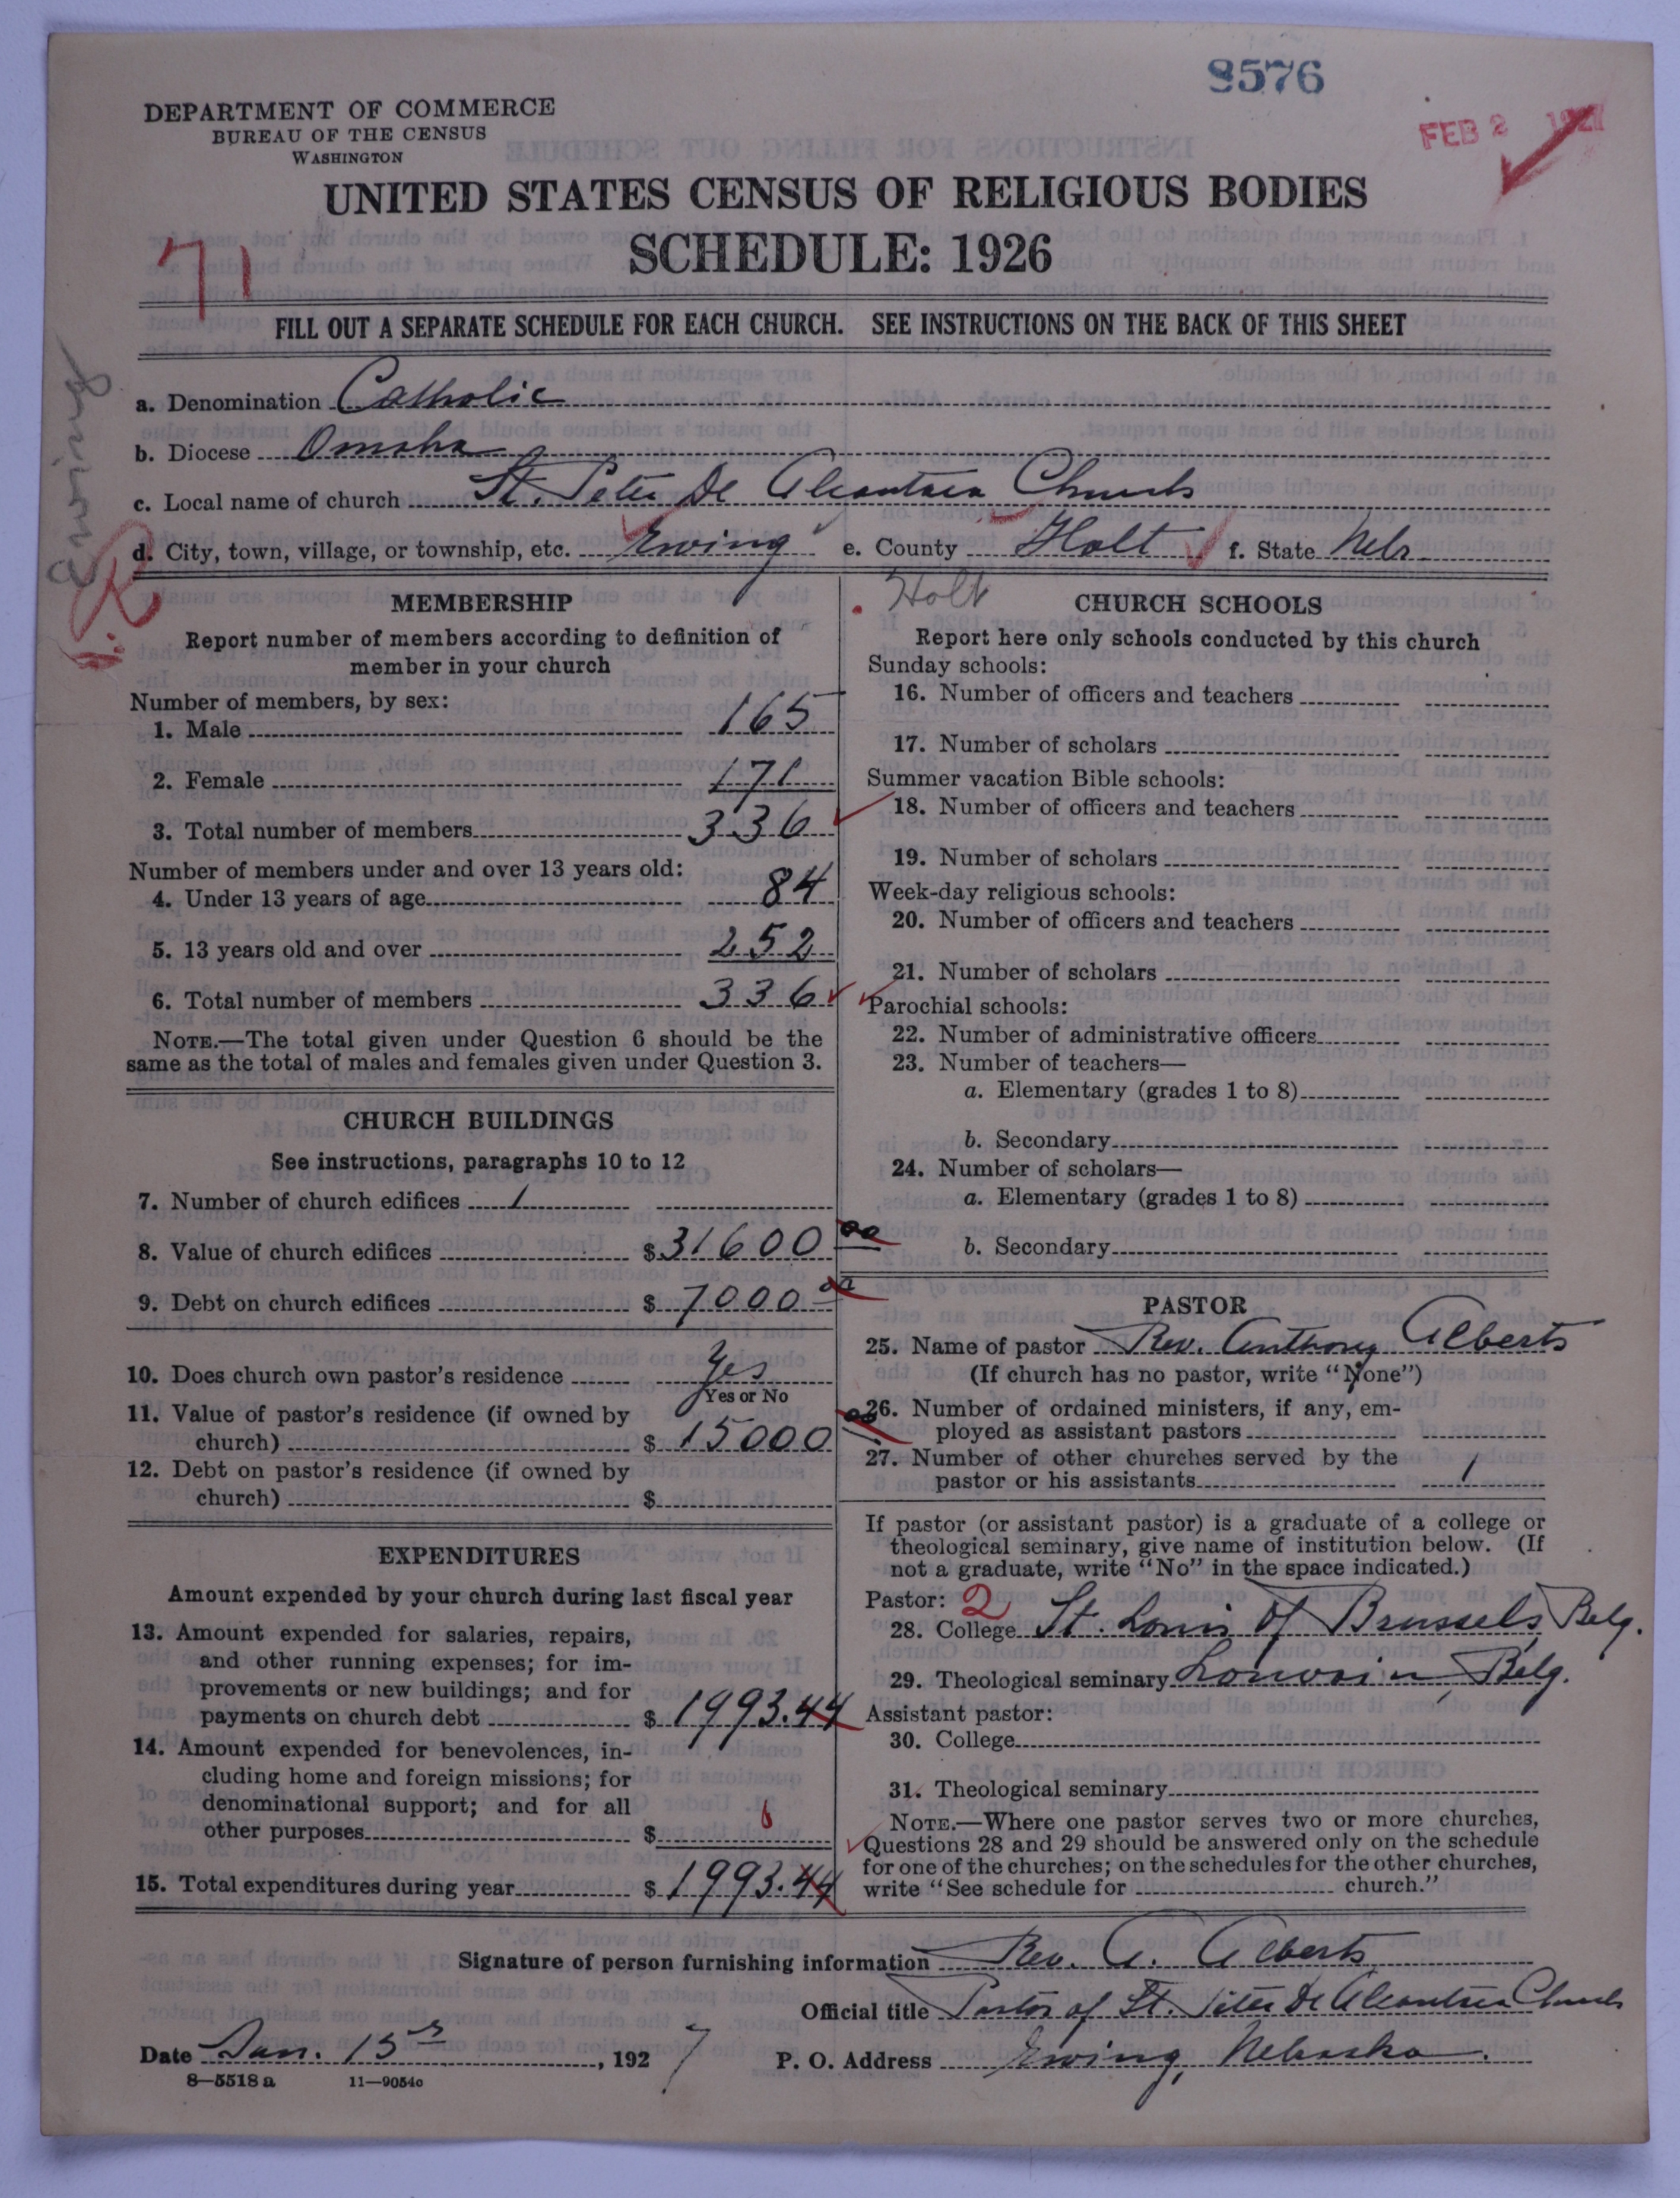 8576
FEB 2 1927
DEPARTMENT OF COMMERCE
BUREAU OF THE CENSUS
WASHINGTON
UNITED STATES CENSUS OF RELIGIOUS BODIES
SCHEDULE: 1926
71
FILL OUT A SEPARATE SCHEDULE FOR EACH CHURCH. SEE INSTRUCTIONS ON THE BACK OF THIS SHEET
Ewing
a. Denomination Catholic
b. Diocese Omaha
c. Local name of church St. Peter De Alcantara Church
d. City, town, village, or township, etc. Ewing e. County Holt f. State Nebr.
Holt
MEMBERSHIP
Report number of members according to definition of
member in your church
Number of members, by sex:
1. Male 165
2. Female 171
3. Total number of members 336
Number of members under and over 13 years old:
4. Under 13 years of age 84
5. 13 years old and over 252
6. Total number of members 336
NOTE.—The total given under Question 6 should be the
same as the total of males and females given under Question 3.
CHURCH BUILDINGS
See instructions, paragraphs 10 to 12
7. Number of church edifices 1
8. Value of church edifices $31600 00
9. Debt on church edifices $7000 00
10. Does church own pastor's residence Yes
Yes or No
11. Value of pastor's residence (if owned by
church) $15000 00
12. Debt on pastor's residence (if owned by
church) $
EXPENDITURES
Amount expended by your church during last fiscal year
13. Amount expended for salaries, repairs,
and other running expenses; for im-
provements or new buildings; and for
payments on church debt $1993.44
14. Amount expended for benevolences, in-
cluding home and foreign missions; for
denominational support; and for all
other purposes $
15. Total expenditures during year $1993.44
CHURCH SCHOOLS
Report here only schools conducted by this church
Sunday schools:
16. Number of officers and teachers
17. Number of scholars
Summer vacation Bible schools:
18. Number of officers and teachers
19. Number of scholars
Week-day religious schools:
20. Number of officers and teachers
21. Number of scholars
Parochial schools:
22. Number of administrative officers
23. Number of teachers—
a. Elementary (grades 1 to 8)
b. Secondary
24. Number of scholars—
a. Elementary (grades 1 to 8)
b. Secondary
PASTOR
25. Name of pastor Rev. Anthony Alberts
(If church has no pastor, write "None")
26. Number of ordained ministers, if any, em-
ployed as assistant pastors
27. Number of other churches served by the
pastor or his assistants 1
If pastor (or assistant pastor) is a graduate of a college or
theological seminary, give name of institution below. (If
not a graduate, write "No" in the space indicated.)
Pastor: 2
28. College St. Louis of Brussels, Belg.
29. Theological seminary Louvain, Belg.
Assistant pastor:
30. College
31. Theological seminary
NOTE.—Where one pastor serves two or more churches,
Questions 28 and 29 should be answered only on the schedule
for one of the churches; on the schedules for the other churches,
write "See schedule for church."
Signature of person furnishing information Rev. A. Alberts
Official title Pastor of St. Peter De Alcantara Church
Date Jan. 15, 1927 P. O. Address Ewing, Nebraska.
8—5518 a 11—9054c